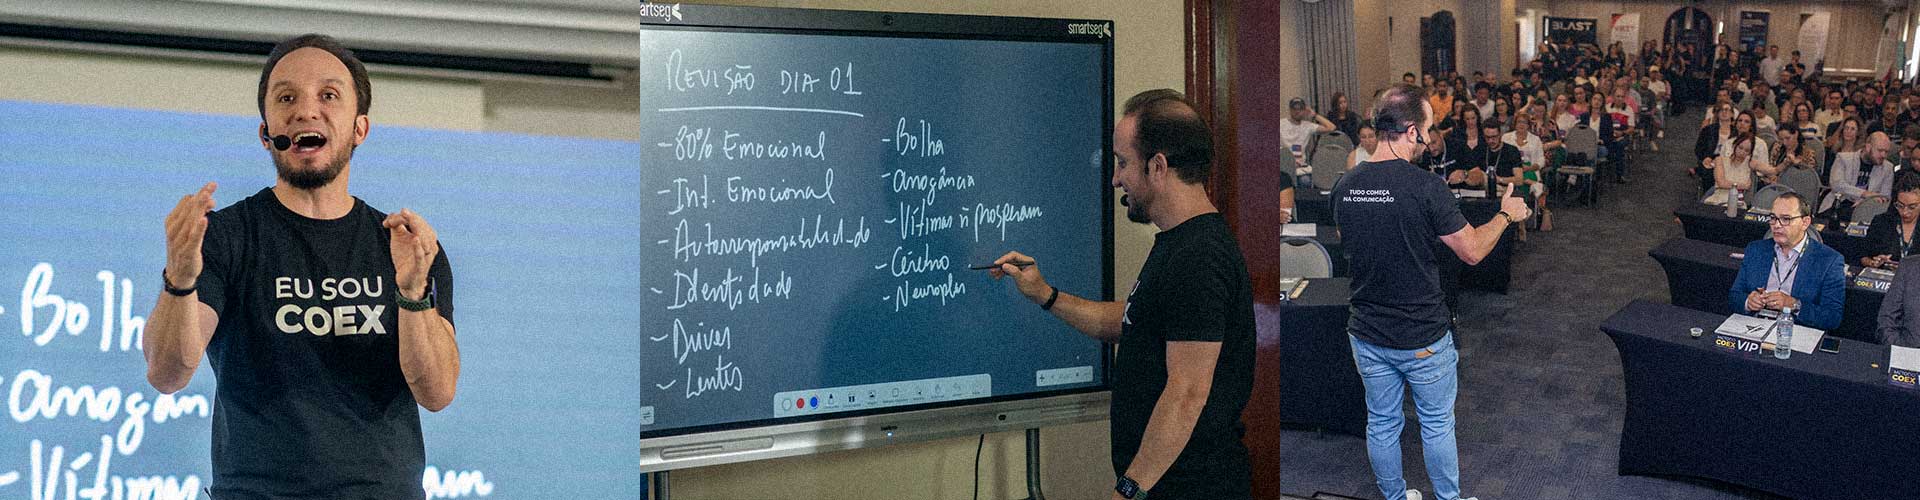 - Bolh
- anogân
- Vítimas
am
EU SOU
COEX
artseg
smartseg
REVISÃO DIA 01
- 80% Emocional
- Int. Emocional
- Autorresponsabilidade
- Identidade
- Drives
- Lentes
- Bolha
- anogância
- Vítimas ñ prosperam
- Cérebro
- Neuroplas
TUDO COMEÇA
NA COMUNICAÇÃO
BLAST
COEX VIP
MÉTODO
COEX VIP
MÉTODO
COEX